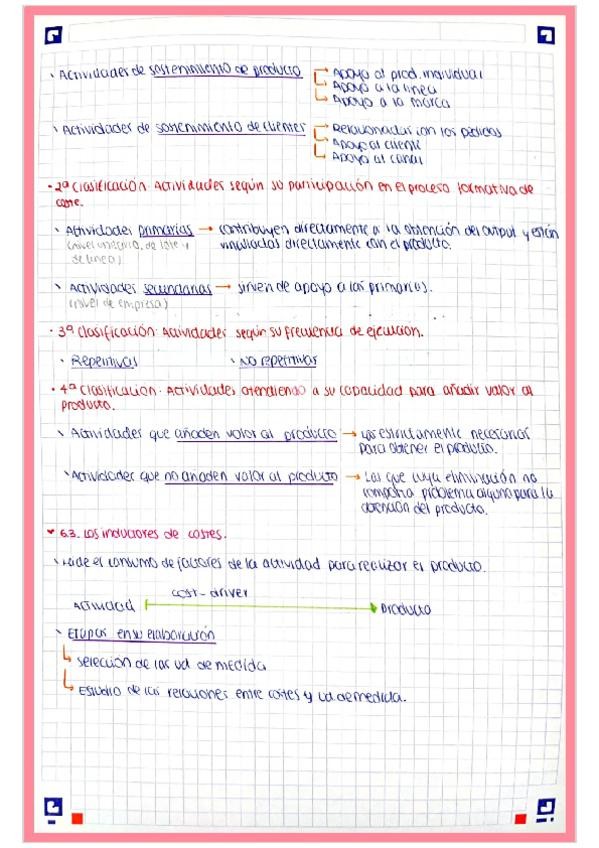 · Actividades de sostenimiento de producto → Apoyo al prod. individual
→ Apoyo a la línea
→ Apoyo a la marca
· Actividades de sostenimiento de clientes → Relacionadas con los pedidos
→ Apoyo al cliente
→ Apoyo al canal
· 2ª Clasificación: Actividades según su participación en el proceso formativo de
coste.
· Actividades primarias → contribuyen directamente a la obtención del output y están
(nivel unitario, de lote y vinculadas directamente con el producto.
de línea)
· Actividades secundarias → sirven de apoyo a las primarias.
(nivel de empresa)
· 3ª Clasificación: Actividades según su frecuencia de ejecución.
· Repetitivas · No repetitivas
· 4ª Clasificación: Actividades atendiendo a su capacidad para añadir valor al
producto.
· Actividades que añaden valor al producto → Las estrictamente necesarias
para obtener el producto.
· Actividades que no añaden valor al producto → Las que cuya eliminación no
comporta problema alguno para la
obtención del producto.
6.3. Los inductores de costes.
· Mide el consumo de factores de la actividad para realizar el producto.
cost-driver
Actividad → Producto
· Etapas en su elaboración
→ Selección de las ud de medida
→ Estudio de las relaciones entre costes y ud de medida.